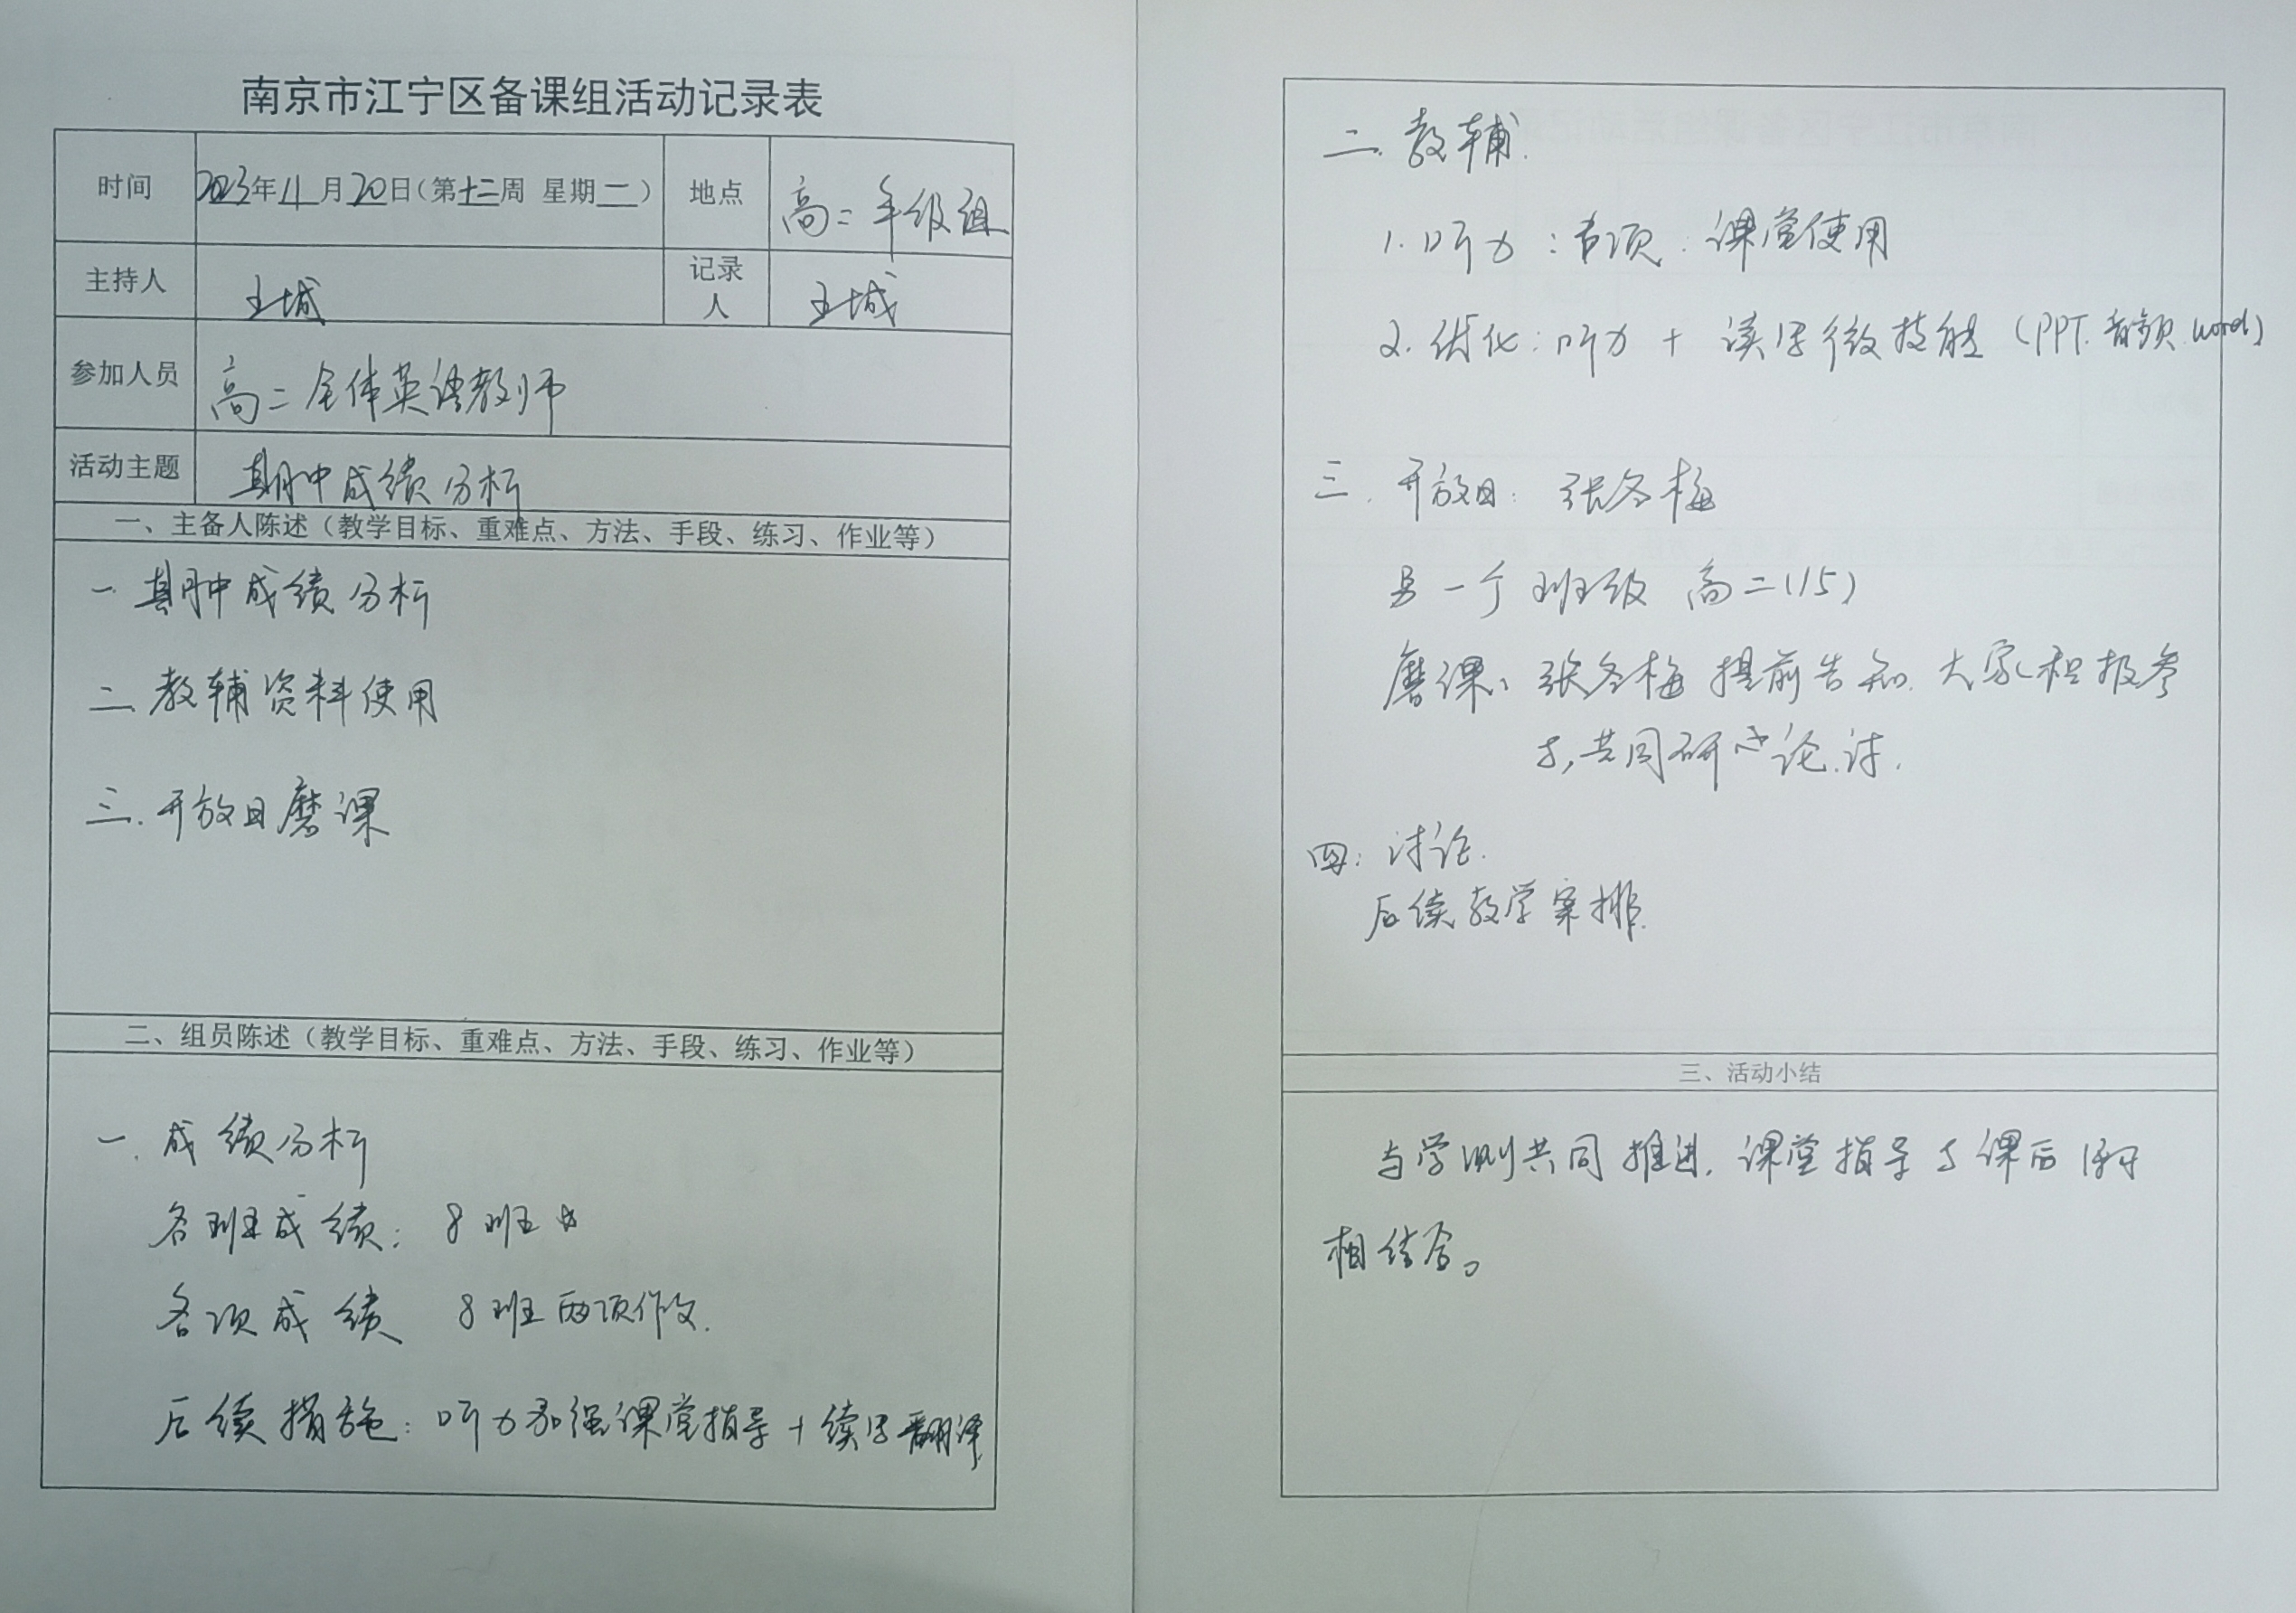 南京市江宁区备课组活动记录表
时间 2023年11月20日(第十二周 星期一) 地点 高二年级组
主持人 王城 记录人 王城
参加人员 高二全体英语教师
活动主题 期中成绩分析
一、主备人陈述(教学目标、重难点、方法、手段、练习、作业等)
一.期中成绩分析
二.教辅资料使用
三.开放日磨课
二、组员陈述(教学目标、重难点、方法、手段、练习、作业等)
一.成绩分析
各班成绩: 8班
各项成绩 8班两项作文.
后续措施:听力加强课堂指导+续写翻译
二.教辅.
1.听力:专项.课堂使用
2.优化:听力+读写微技能(PPT.音频.word)
三.开放日:张冬梅
另一个班级 高二(15)
磨课:张冬梅提前告知.大家积极参
与,共同研 论.讨.
四:讨论.
后续教学安排.
三、活动小结
与学测共同推进.课堂指导与课后
相结合。